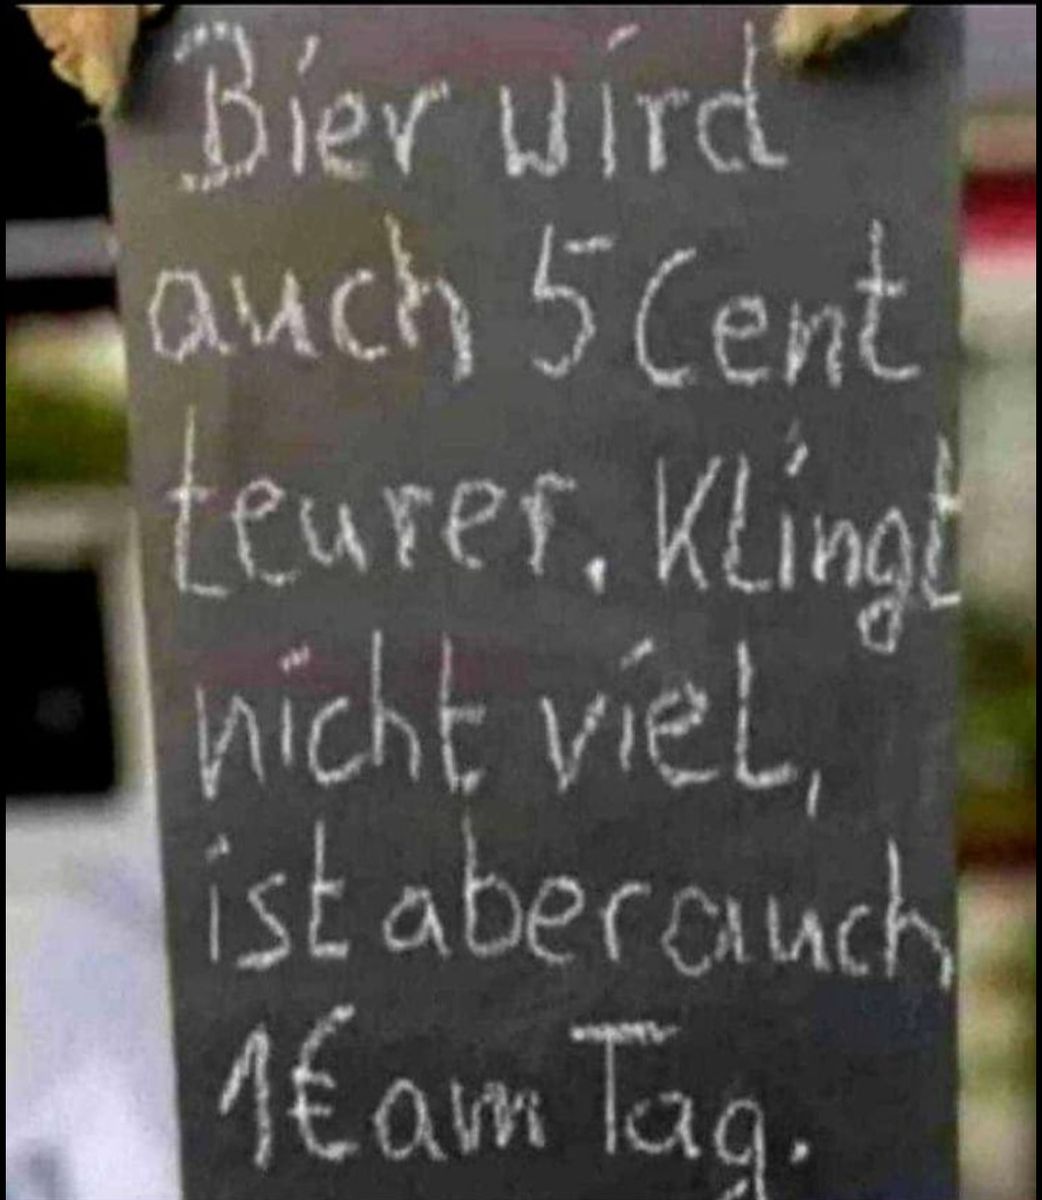 Bier wird
auch 5 Cent
teurer. Klingt
nicht viel,
ist aber auch
1€ am Tag.